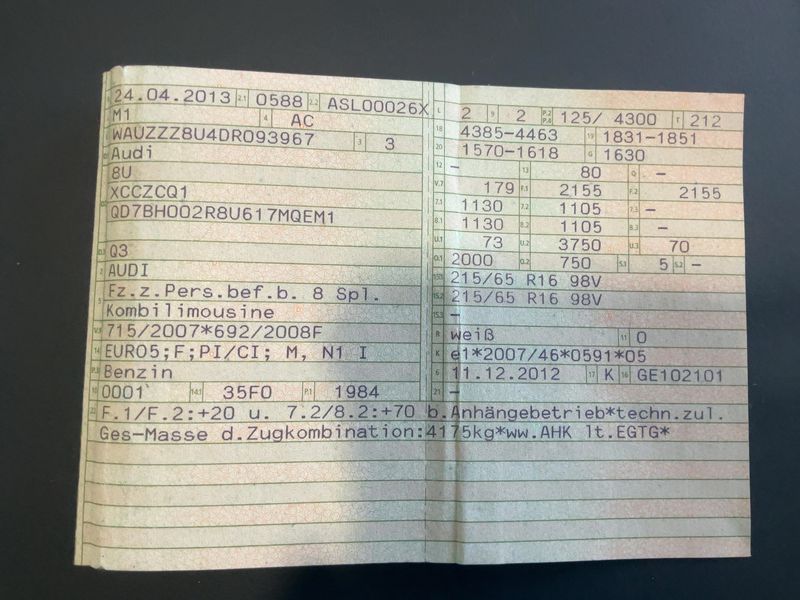 24.04.2013 2.1 0588 2.2 ASL00026X
M1 4 AC
WAUZZZ8U4DR093967 3 3
Audi
8U
XCCZCQ1
QD7BH002R8U617MQEM1
D.3 Q3
2 AUDI
5 Fz.z.Pers.bef.b. 8 Spl.
Kombilimousine
V.9 715/2007*692/2008F
14 EURO5;F;PI/CI; M, N1 I
P.3 Benzin
10 0001 14.1 35F0 P.1 1984
L 2 9 2 P.2 P.4 125/ 4300 T 212
18 4385-4463 19 1831-1851
20 1570-1618 G 1630
12 – 13 80 Q –
V.7 179 F.1 2155 F.2 2155
7.1 1130 7.2 1105 7.3 –
8.1 1130 8.2 1105 8.3 –
U.1 73 U.2 3750 U.3 70
O.1 2000 O.2 750 S.1 5 S.2 –
15.1 215/65 R16 98V
15.2 215/65 R16 98V
15.3 –
R weiß 11 0
K e1*2007/46*0591*05
6 11.12.2012 17 K 16 GE102101
21 –
22 F.1/F.2:+20 u. 7.2/8.2:+70 b.Anhängebetrieb*techn.zul.
Ges-Masse d.Zugkombination:4175kg*ww.AHK lt.EGTG*